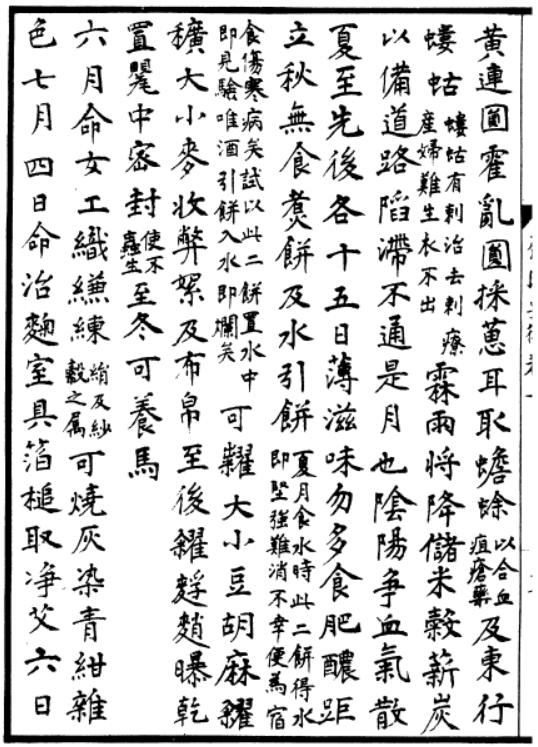 黃連圓霍亂圓採葱耳取蟾蜍以合血疽瘡藥及東行
螻蛄螻蛄有刺治去刺療產婦難生衣不出霖雨將降儲米穀薪炭
以備道路陷滯不通是月也陰陽爭血氣散
夏至先後各十五日薄滋味勿多食肥醲距
立秋無食煑餅及水引餅夏月食水時此二餅得水即堅強難消不幸便為宿
食傷寒病矣試以此二餅置水中即見驗唯酒引餅入水即爛矣可糶大小豆胡麻糴
穬大小麥收弊絮及布帛至後糴𪍠䴬曝乾
置甖中密封使不蟲生至冬可養馬
六月命女工織縑練絹及紗縠之属可燒灰染青紺雜
色七月四日命治麴室具箔槌取净艾六日